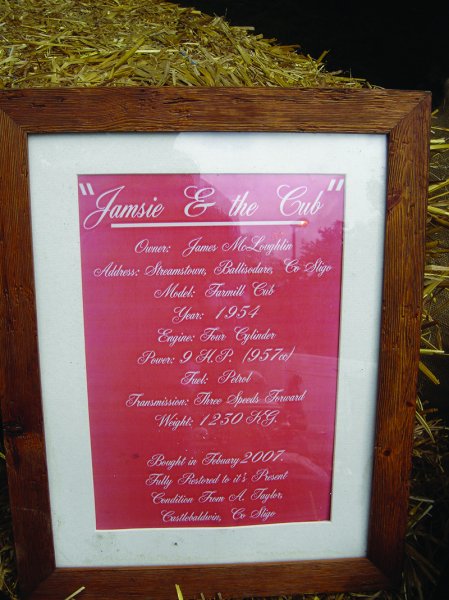 "Jamsie & the Cub"
Owner: James McLoughlin
Address: Streamstown, Ballisodare, Co Sligo
Model: Farmill Cub
Year: 1954
Engine: Four Cylinder
Power: 9 H.P. (957cc)
Fuel: Petrol
Transmission: Three Speeds Forward
Weight: 1230 KG.
Bought in Febuary 2007.
Fully Restored to it's Present
Condition From A. Taylor,
Castlebaldwin, Co Sligo